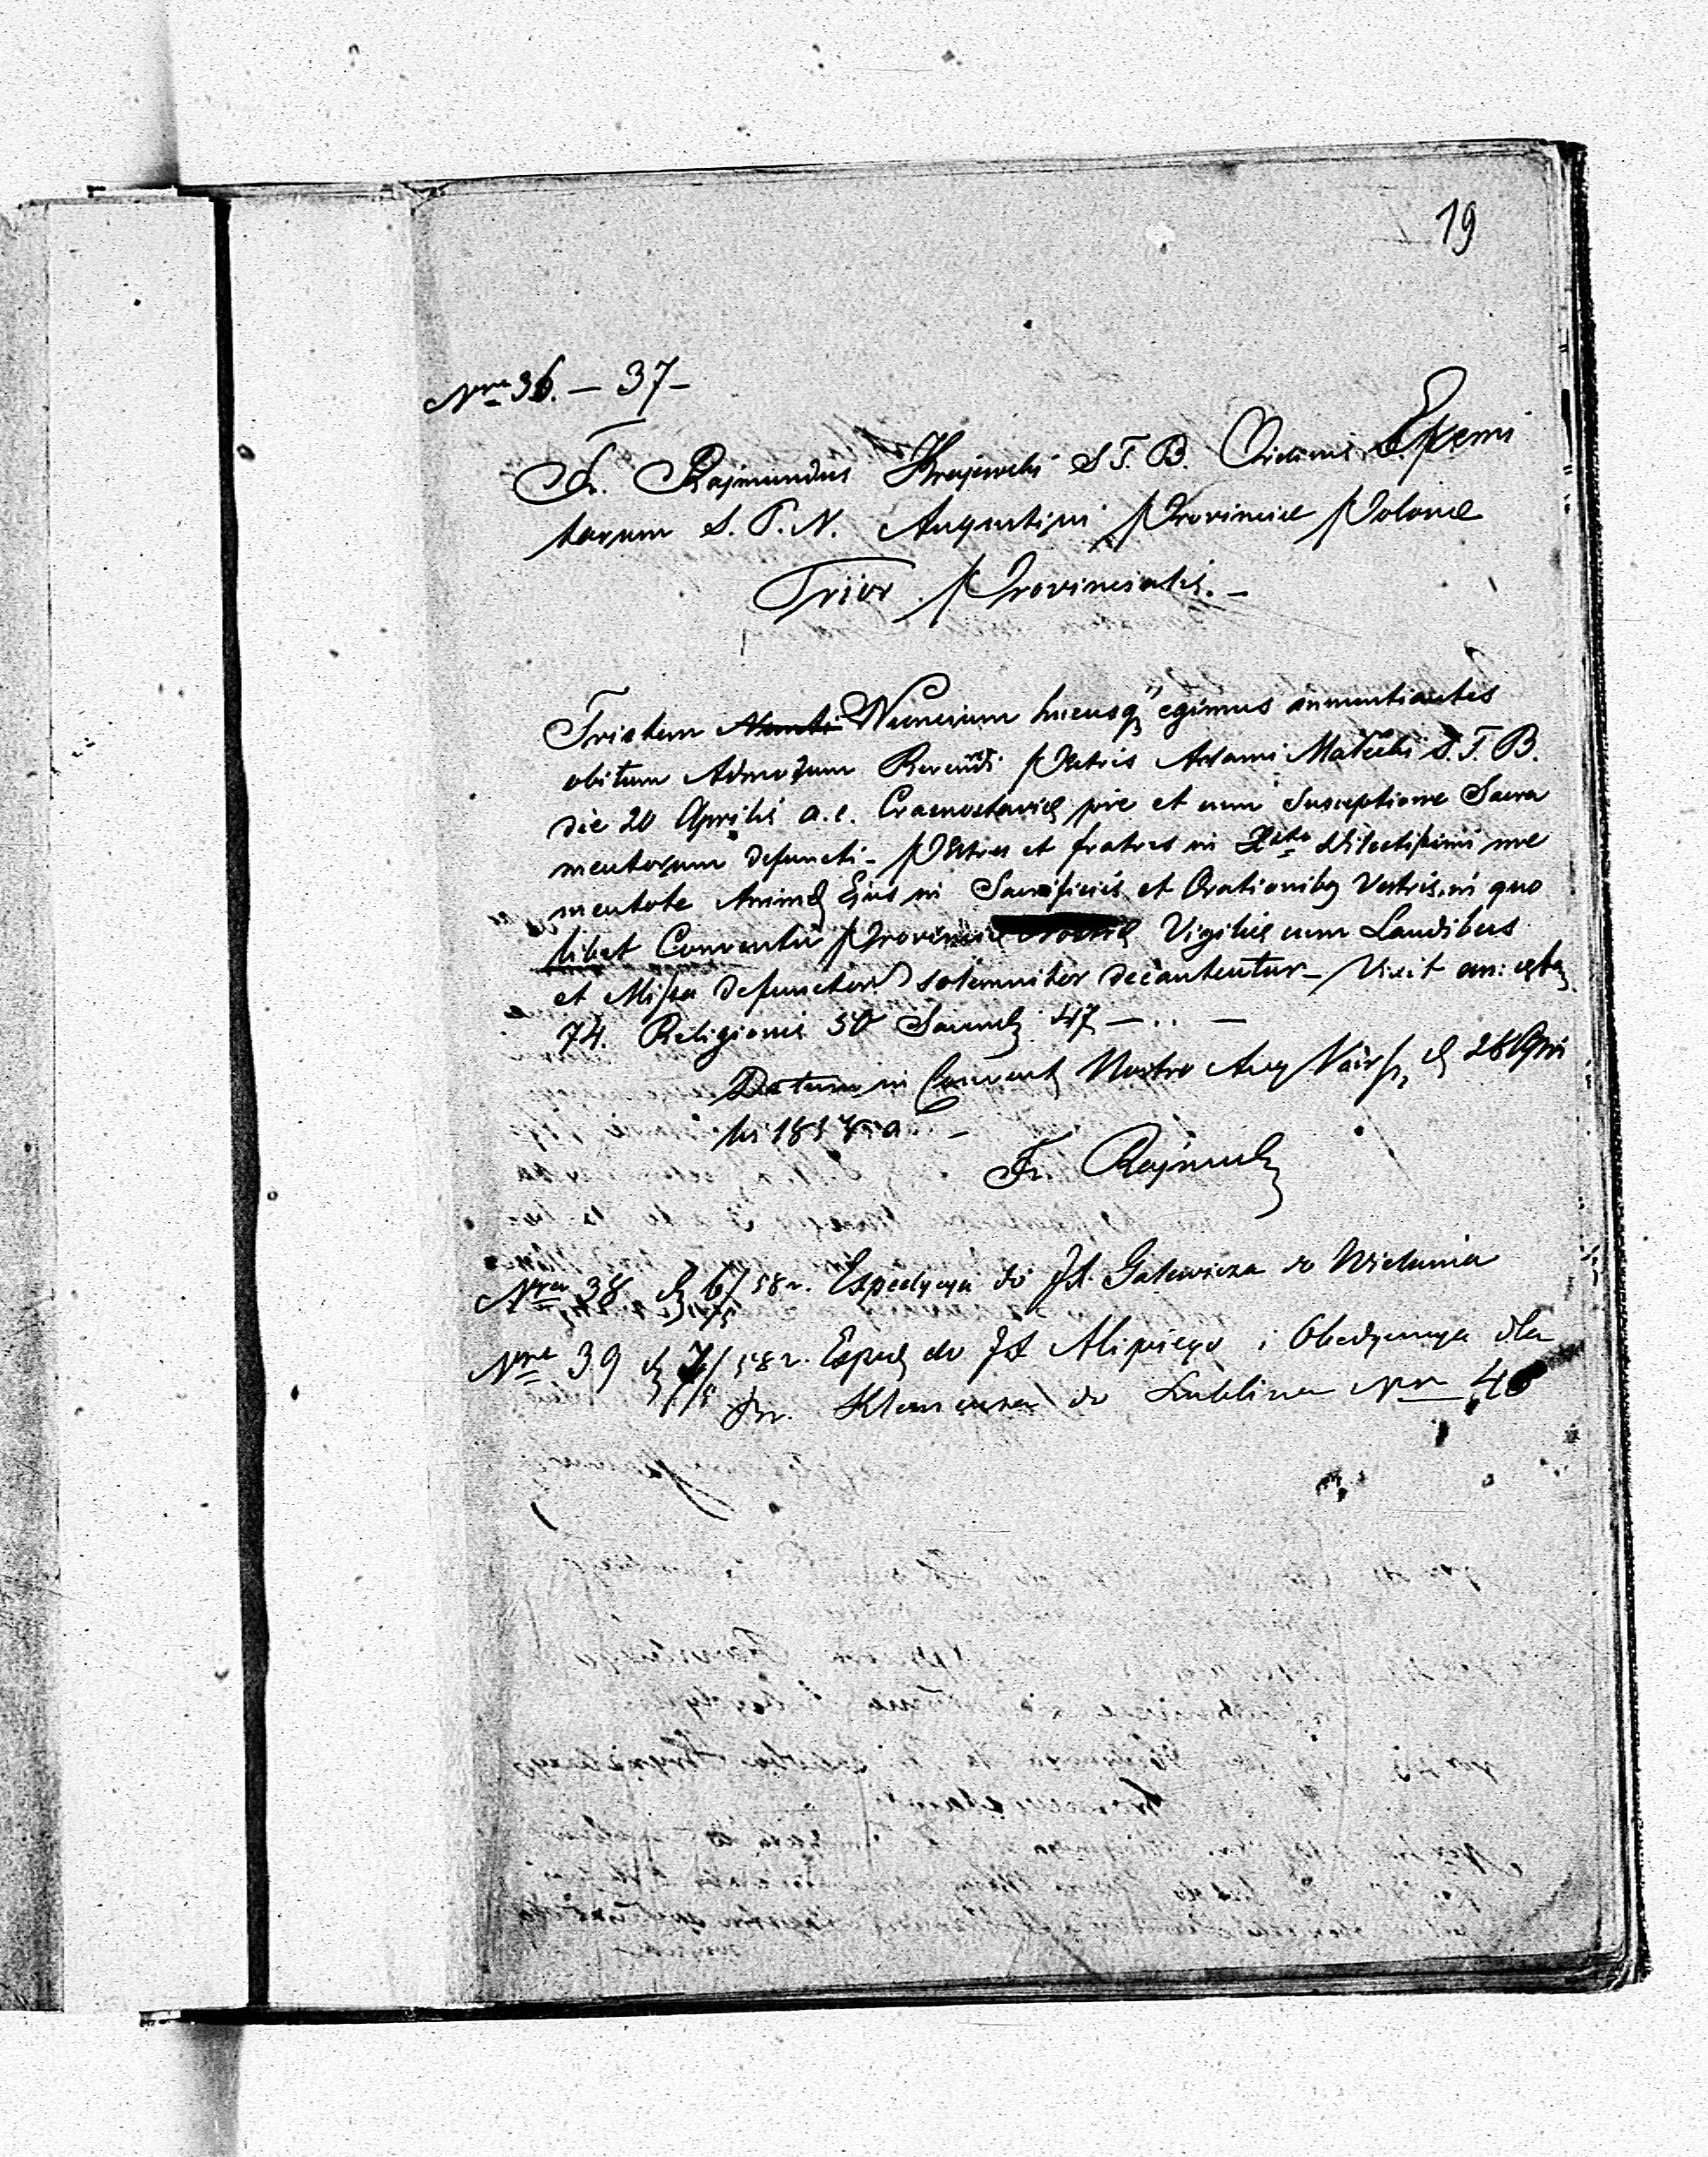 19
Nro 36. — 37 —
Fr. Rajmundus Krajewski S. T. B. Ordinis Eremi
tarum S. P. N. Augustini Provinciæ Polonæ
Prior Provincialis. —
Tristem Nunti Nuncium hucusq egimus annuntiantes
obitum Admodum Rerendi Patris Adami Matecki S. T. B.
die 20 Aprilis a. c. Crasnostaviæ pie et cum Susceptione Sacra
mentorum defuncti — Patres et fratres in Xsto dilectissimi me
mentote Animæ Ejus in Sacrificiis et Orationibq Vestris. in quo
libet Conventu Provinciæ Nostræ Vigiliæ cum Laudibus
et Missa defunctor solemniter decantentur — Vixit an:
74. Religionis 50 Sacerd 47 — . . —
Datum in Convent Nostro Aug Vars, d 28 Apri
lis 1858 a —
Fr. Rajmund
Nro 38 d 6/5 58 r. Expedycya do JX. Galewicza do Wielunia
Nro 39 d 7/5 58 r. Exped do JX Alipiego i Obedyencya dla
Br. Klemensa do Lublina Nro 40